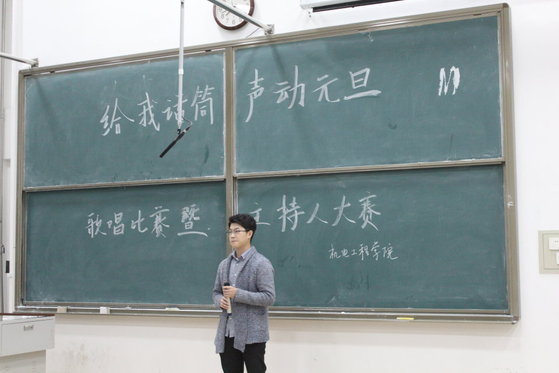 给我话筒 声动元旦
歌唱比赛暨 主持人大赛
机电工程学院